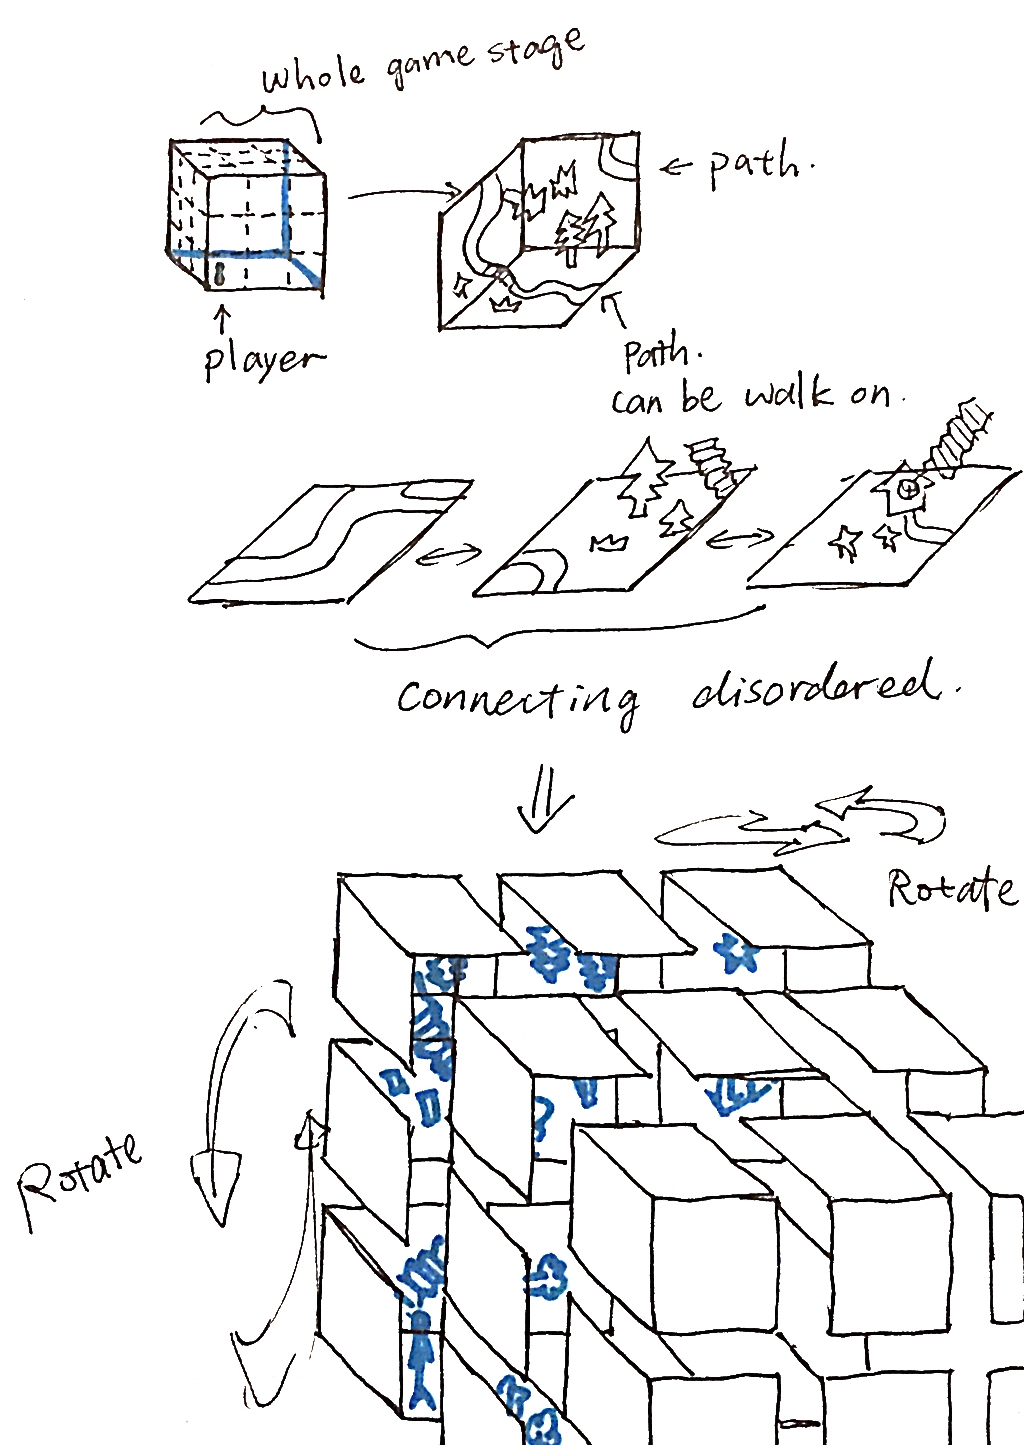 Whole game stage
← path.
player
Path.
can be walk on.
Connecting disordered.
Rotate
Rotate
?